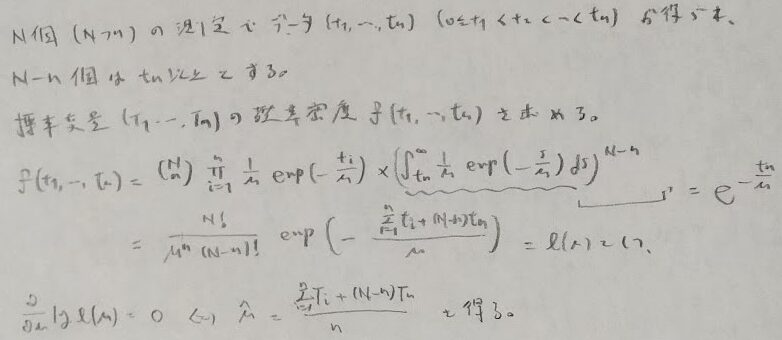 N個 (N>n) の測定でデータ (t₁, ..., tₙ) (0≤t₁ < t₂ < ... < tₙ) が得られ、
N-n 個は tₙ 以上とする。
確率変量 (T₁ ..., Tₙ) の確率密度 f(t₁, ..., tₙ) を求める。
f(t₁, ..., tₙ) = (N n) ∏_{i=1}^{n} 1/μ exp(-tᵢ/μ) × (∫_{tₙ}^{∞} 1/μ exp(-s/μ) ds)^{N-n} = e^{-tₙ/μ}
= N!/(μⁿ (N-n)!) exp(-(∑_{i=1}^{n} tᵢ + (N-n)tₙ)/μ) = l(μ) として、
∂/∂μ log l(μ) = 0 ⇔ μ̂ = (∑_{i=1}^{n} Tᵢ + (N-n)Tₙ)/n を得る。